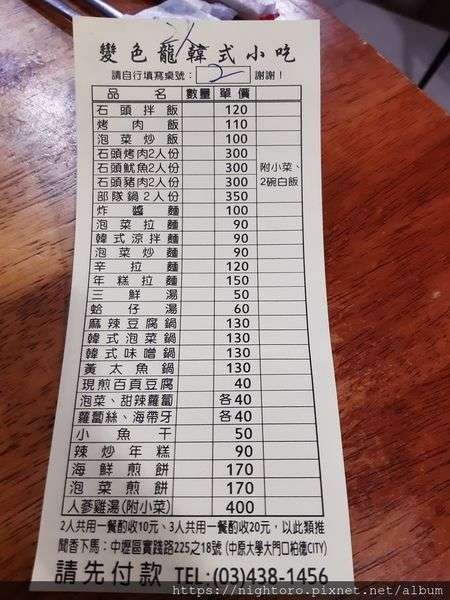 變色龍韓式小吃
請自行填寫桌號： 2 謝謝！
品名 數量 單價
石頭拌飯 120
烤肉飯 110
泡菜炒飯 100
石頭烤肉2人份 300
石頭魷魚2人份 300 附小菜、
石頭豬肉2人份 300 2碗白飯
部隊鍋2人份 350
炸醬麵 100
泡菜拉麵 90
韓式涼拌麵 90
泡菜炒麵 90
辛拉麵 120
年糕拉麵 150
三鮮湯 50
蛤仔湯 60
麻辣豆腐鍋 130
韓式泡菜鍋 130
韓式味噌鍋 130
黃太魚鍋 130
現煎百頁豆腐 40
泡菜、甜辣蘿蔔 各40
蘿蔔絲、海帶牙 各40
小魚干 50
辣炒年糕 90
海鮮煎餅 170
泡菜煎餅 170
人蔘雞湯(附小菜) 400
2人共用一餐酌收10元、3人共用一餐酌收20元，以此類推
聞香下馬：中壢區實踐路225之18號 (中原大學大門口柏德CITY)
請先付款 TEL:(03)438-1456
https://nightoro.pixnet.net/album